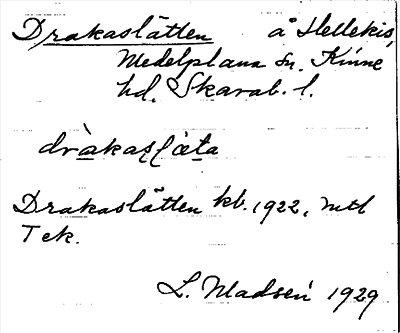 Drakaslätten å Hellekis,
Medelplana sn. Kinne
hd. Skarab. l.
dràkasḷæta
Drakaslätten kb. 1922, mtl
Tek.
L. Madsén 1929